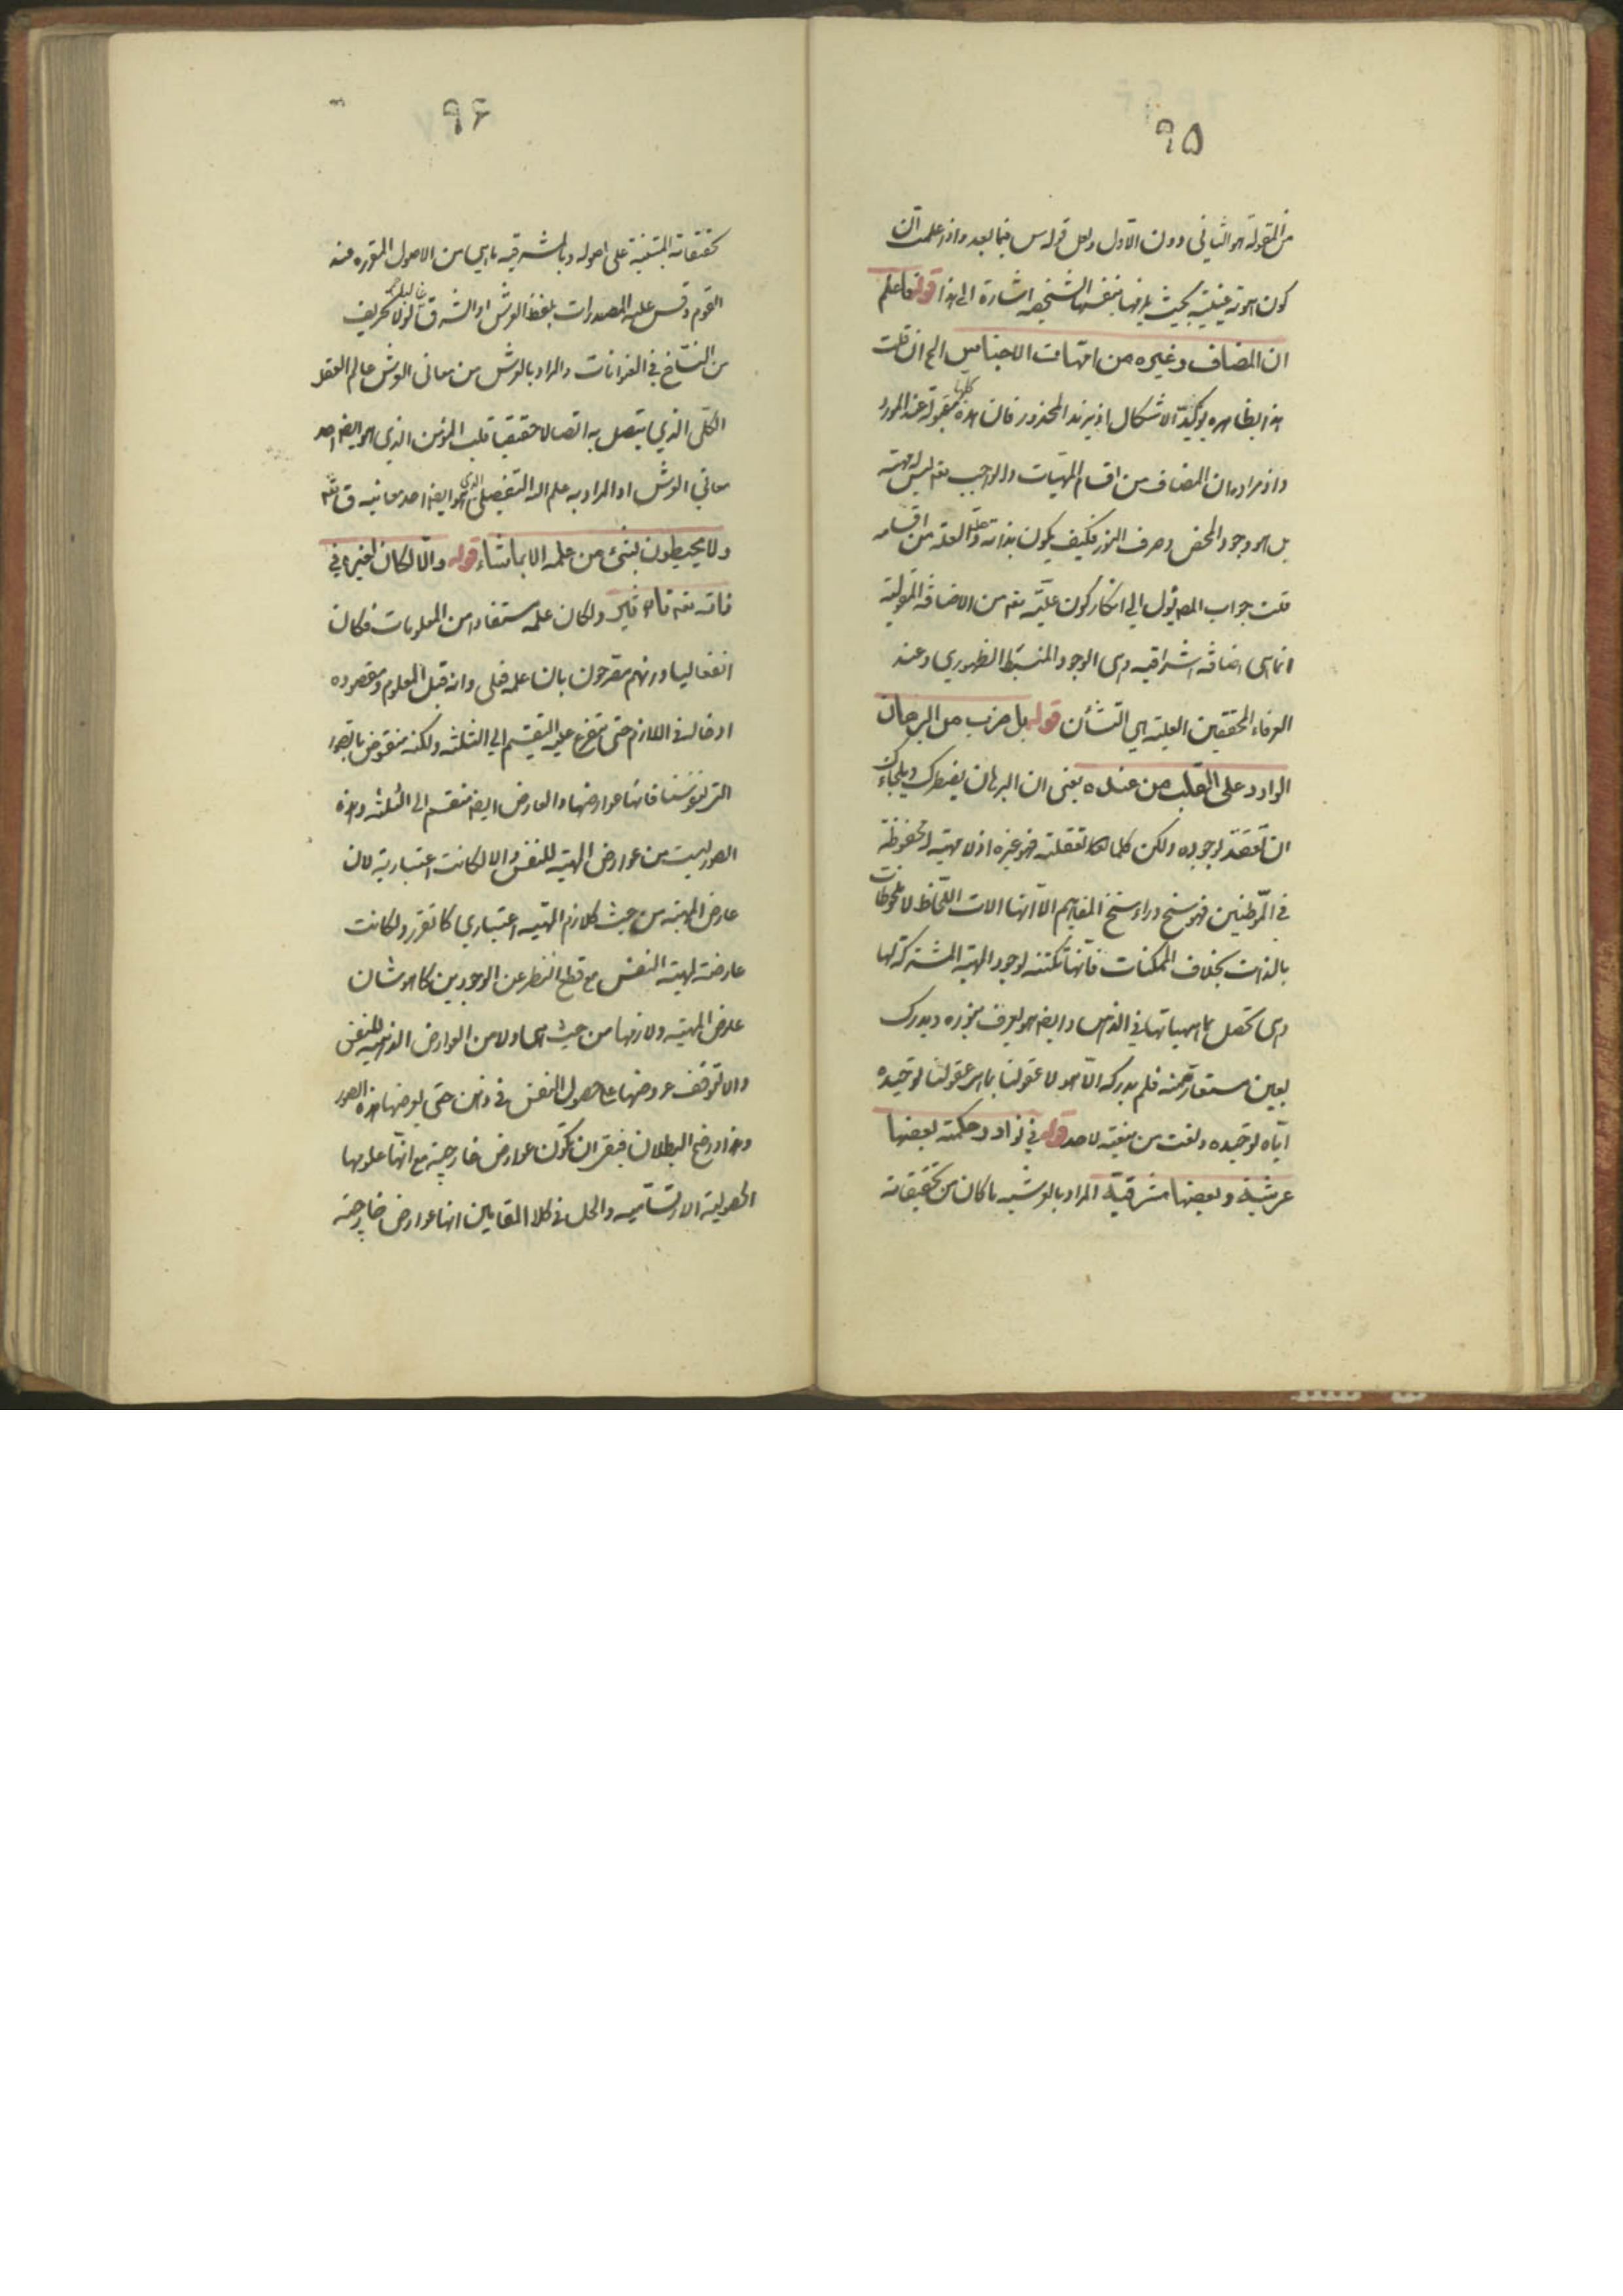 ٩٥
من المقولة هو الثاني دون الاول ولعل قوله س فيما بعد واذا علمت ان
كون هوية عينية بحيث يلزمها بنفسها الشخصية اشارة الى هذا قوله فاعلم
ان المضاف وغيره من امهات الاجناس الخ ان قلت
هذا بظاهره يؤكد الاشكال اذ يزيد المحذور فان هذه كلها مقولة عند المورد
واذ مراده ان المضاف من اقسام المهيات والواجب تعه ليس له مهية
بل هو وجود المحض وصرف النور فكيف يكون بذاته علة والعلة من اقسامه
قلت جواب المصه يؤل الى انكار كون علية تعه من الاضافة المقولية
انما هى اضافة اشراقية وهى الوجود المنبسط الظهوري وعند
العرفاء المحققين العلية هي التشأن قوله بل ضرب من البرهان
الوارد على القلب من عنده يعنى ان البرهان يضطرك ويلجاءك
ان تعتقد لوجوده ولكن كلما تعقلته فهو غيره اذ لا مهية له محفوظة
في الموطنين فهو سنخ وراء سنخ المفاهيم الا انها الات اللحاظ لا ملحوظات
بالذات بخلاف الممكنات فانها تكتنه لوجود المهية المشتركة لها
وهى تحصل بماهياتها في الذهن وايضا هو يعرف بنوره ويدرك
بعين مستعار منه فلم يدركه الا هو لا عقولنا بما هى عقولنا توحيده
اياه توحيده ونعت من ينعته لاحد قوله في نوادر حكمته بعضها
عرشية وبعضها مشرقية المراد بالعرشية ما كان من تحقيقاته
٩۶
تحقيقاته المبتنية على اصوله وبالمشرقية ما هي من الاصول المقررة عند
القوم وقس عليه المصدرات بلفظ العرش او الشرق لولا تحريف
من النساخ في العنوانات والمراد بالعرش من معانى العرش عالم العقل
الكلى الذي يتصل به اتصالا حقيقيا قلب المؤمن الذي هو ايضا احد
معاني العرش او المراد به علم الله التفصيلى الذي هو ايضا احد معانيه ق تعه
ولا يحيطون بشيء من علمه الا بما شاء قوله والا لكان لغيره في
ذاته تعه تاثير ولكان علمه مستفادا من المعلومات فكان
انفعاليا وانهم مصرحون بان علمه فعلى وانه قبل المعلوم ومقصوده
ادخاله في اللازم حتى يتفرع عليه التقسيم الى الثلثة ولكنه منقوض بالصور
التى بنفوسنا فانها عوارضها والعارض ايضا منقسم الى الثلثة وهذه
الصور ليست من عوارض المهية للنفس والا لكانت اعتبارية لان
عارض المهية من حيث كلازم المهية اعتباري كما تقرر ولكانت
عارضة لمهية النفس مع قطع النظر عن الوجودين كما هو شان
عارض المهية ولازمها من حيث هى ولا من العوارض الذهنية للنفس
والا لتوقف عروضها على حصول النفس في ذهن حتى يعرضها هذه الصور
وهذا واضح البطلان فبقى ان تكون عوارض خارجية مع انها علومها
الحصولية الارتسامية والحل في كلا المقامين انها عوارض خارجية